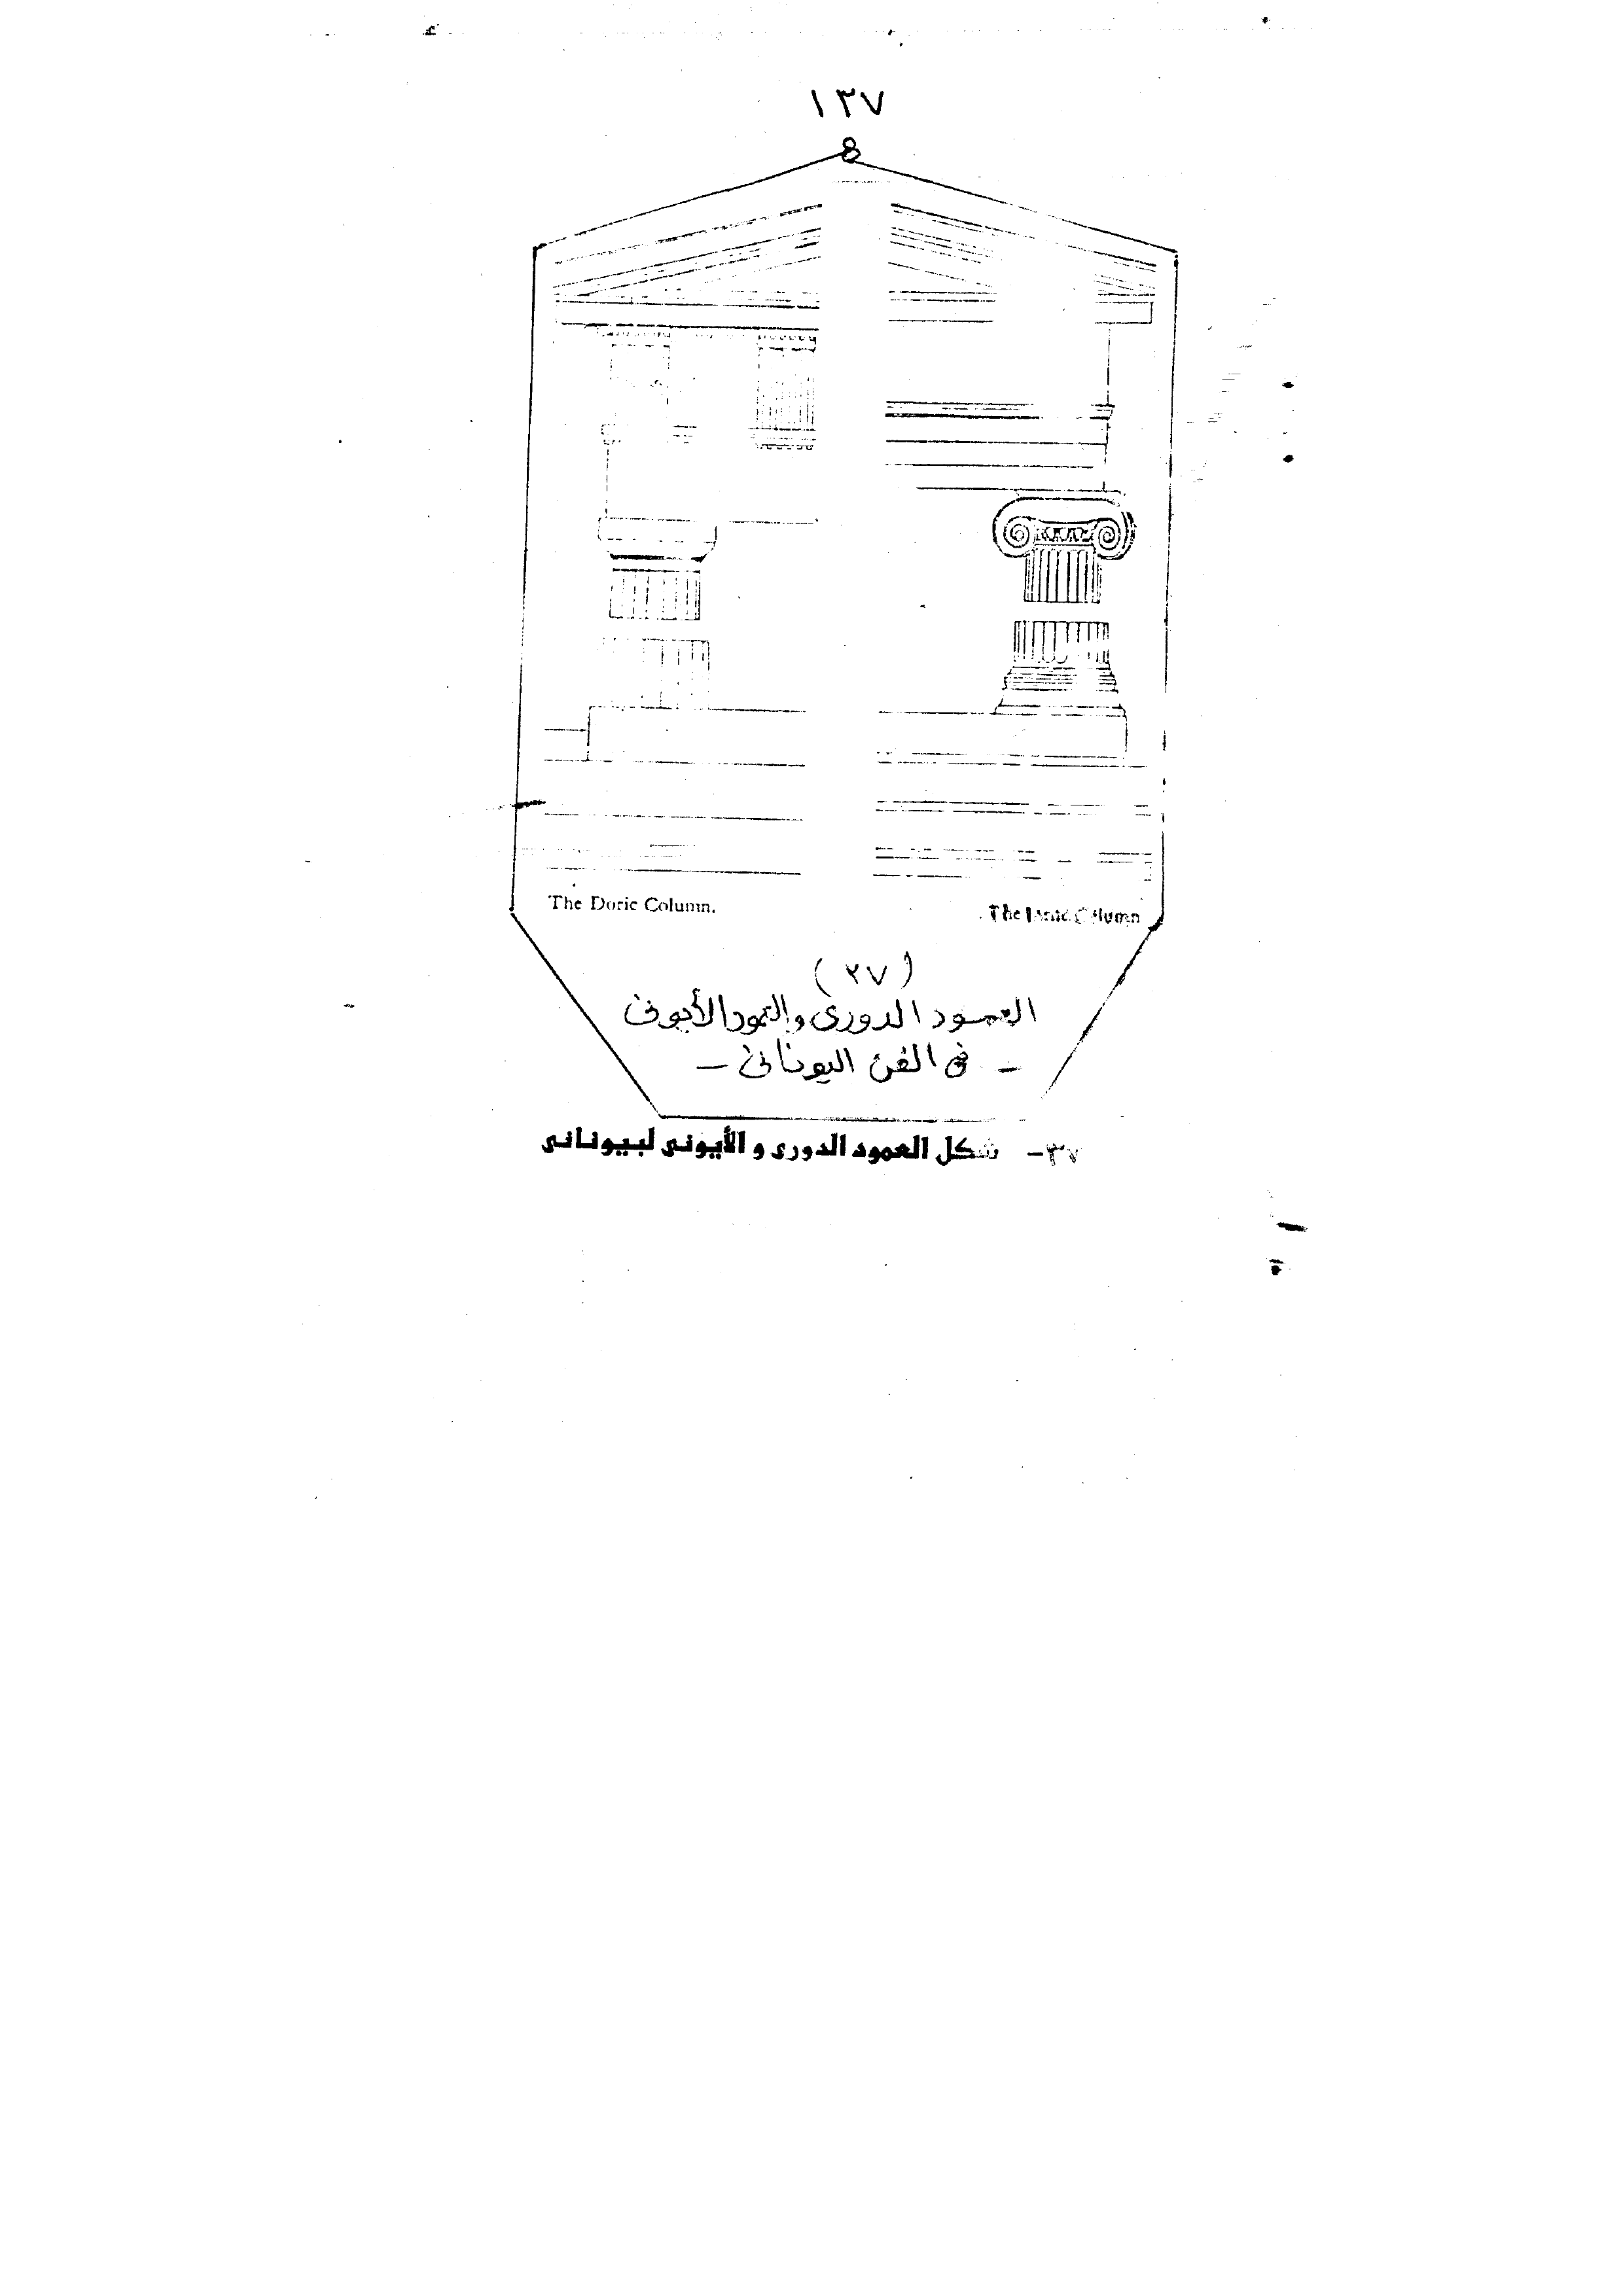 ١٣٧
The Doric Column.
The Ionic Column
(٣٧)
العمود الدورى والعمود الأيونى
- فى الفن اليونانى -
٣٧- شكل العمود الدورى و الأيونى لبيونانى